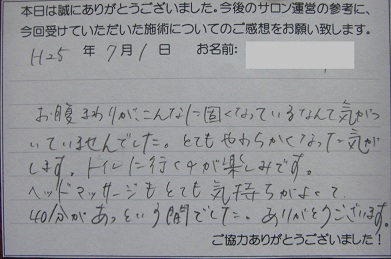 本日は誠にありがとうございました。今後のサロン運営の参考に、
今回受けていただいた施術についてのご感想をお願い致します。
H25 年 7月 1 日 お名前:
お腹まわりが、こんなに固くなっているなんて気がつ
いていませんでした。とてもやわらかくなった気が
します。トイレに行くのが楽しみです。
ヘッドマッサージもとても気持ちがよくて、
40分があっという間でした。ありがとうございます。
ご協力ありがとうございました!